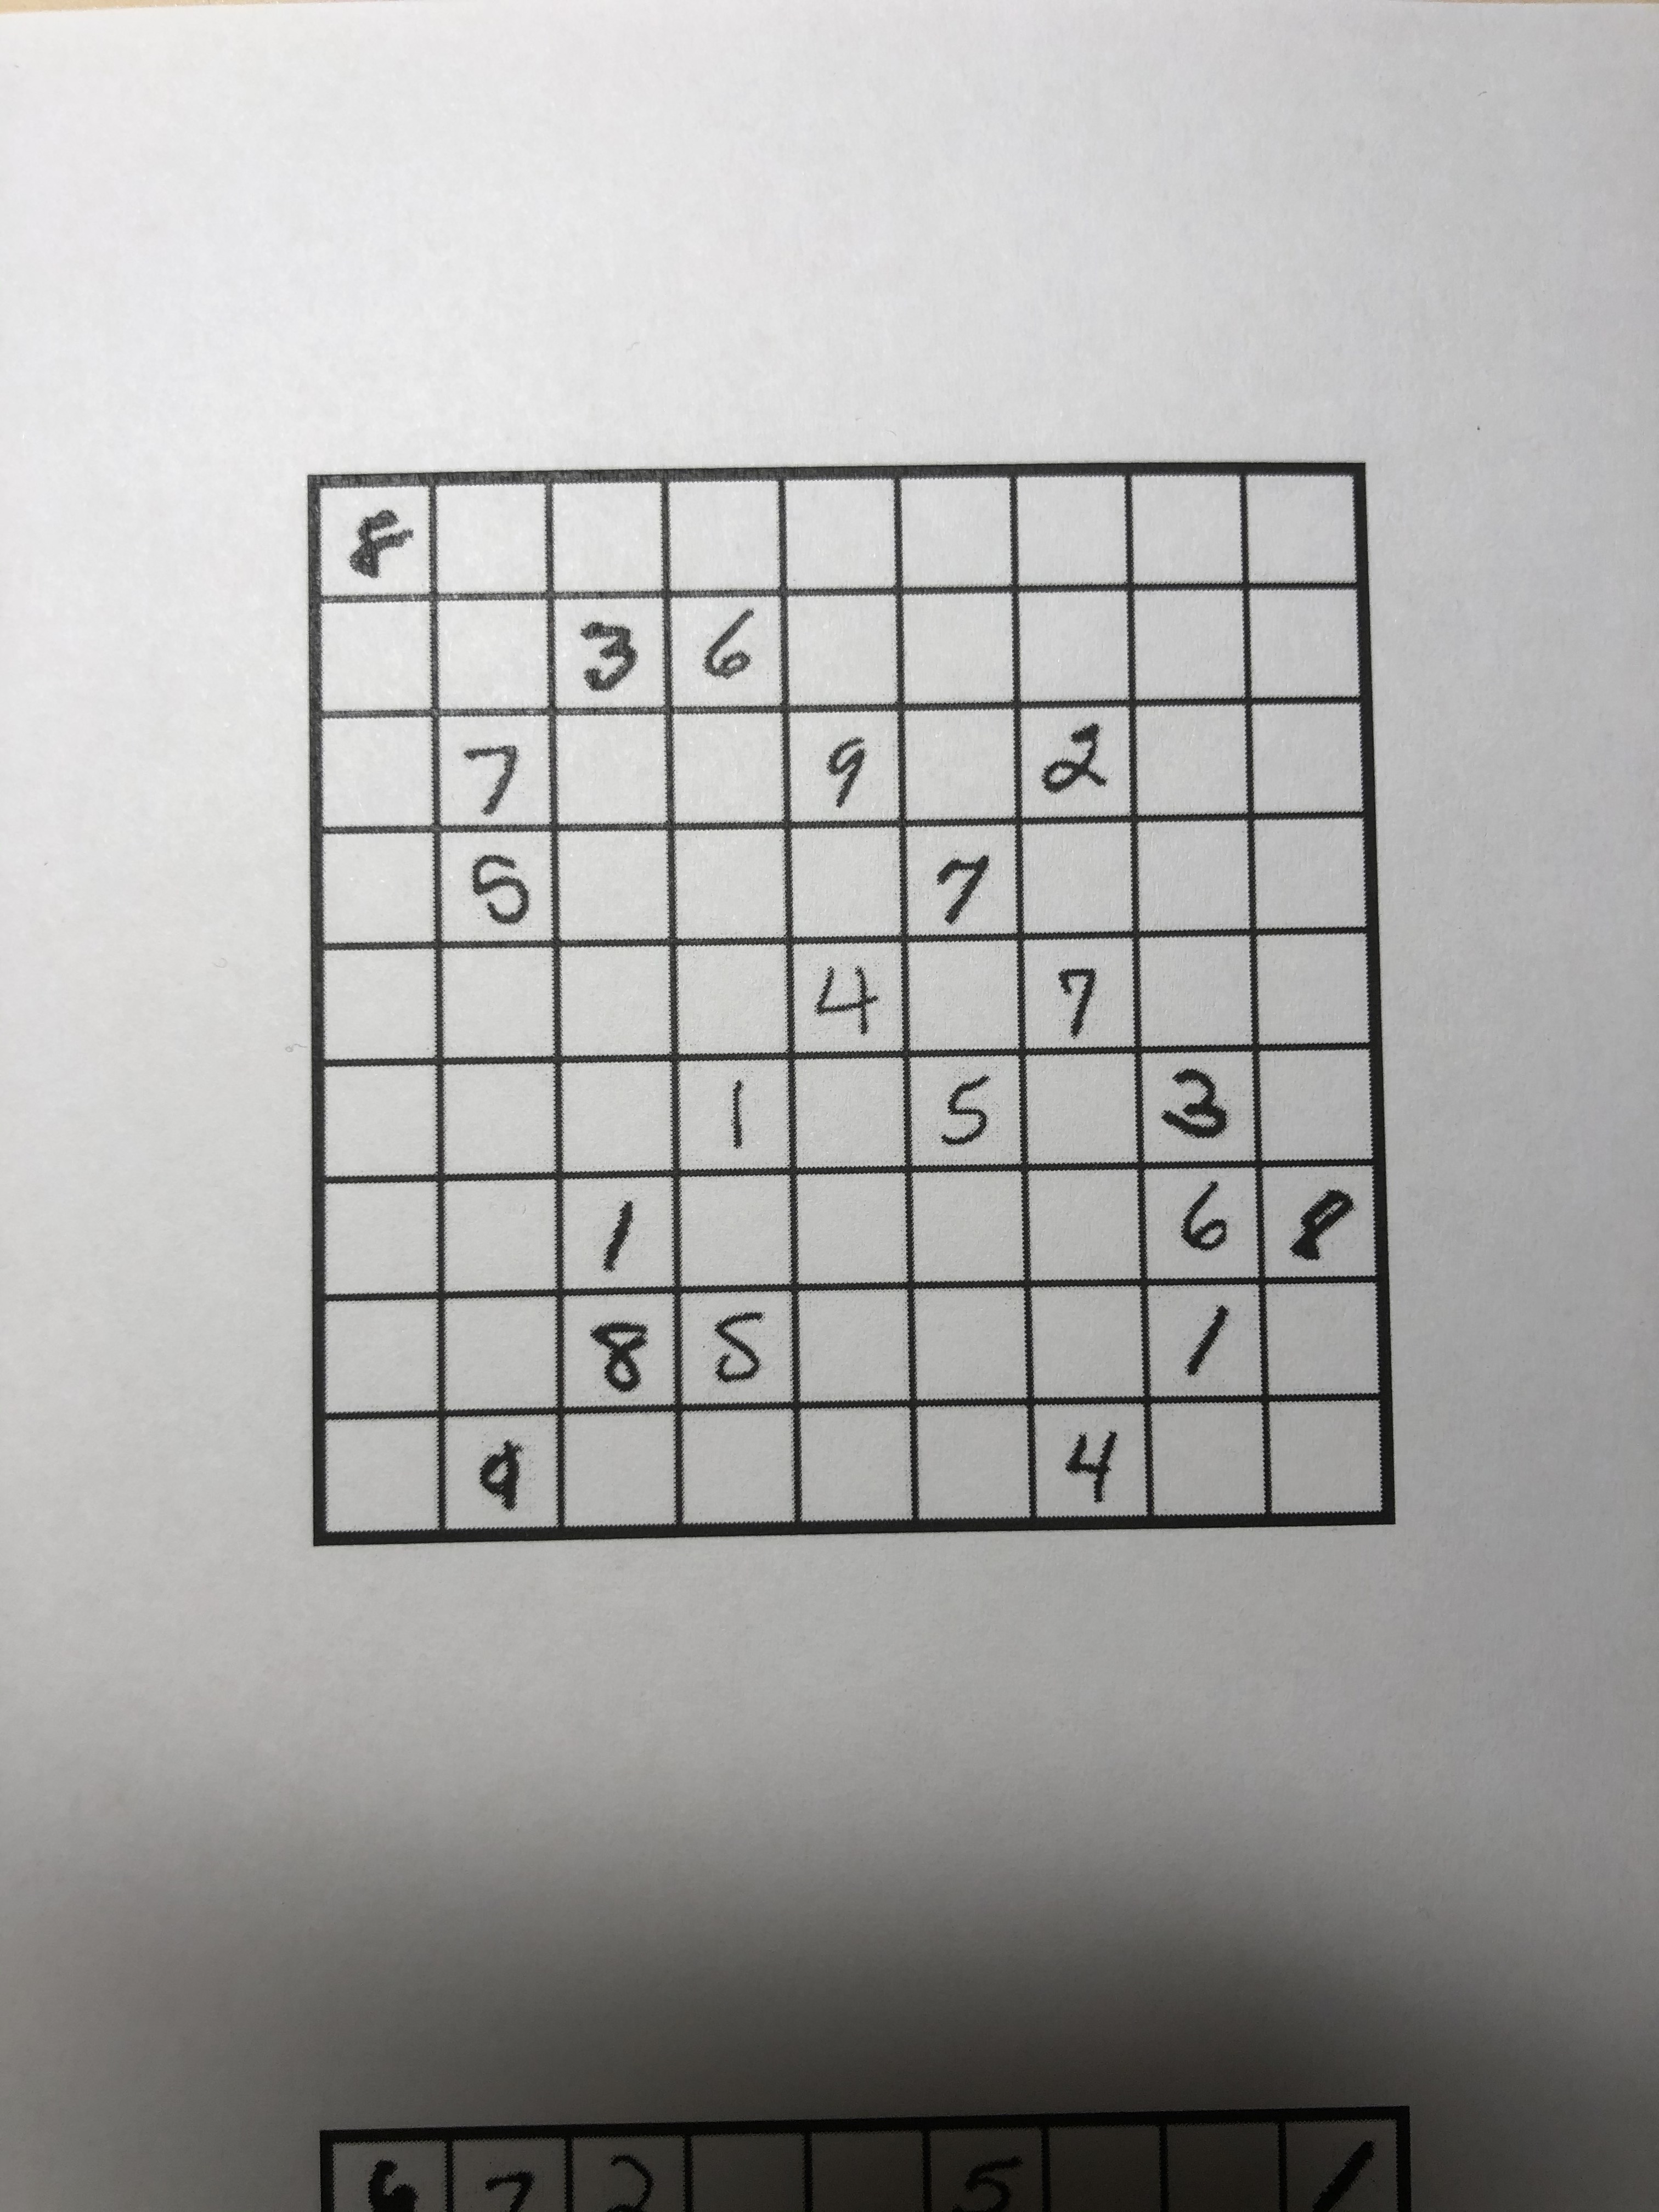 8
3 6
7 9 2
5 7
4 7
1 5 3
1 6 8
8 5 1
9 4
6 7 2 5 1